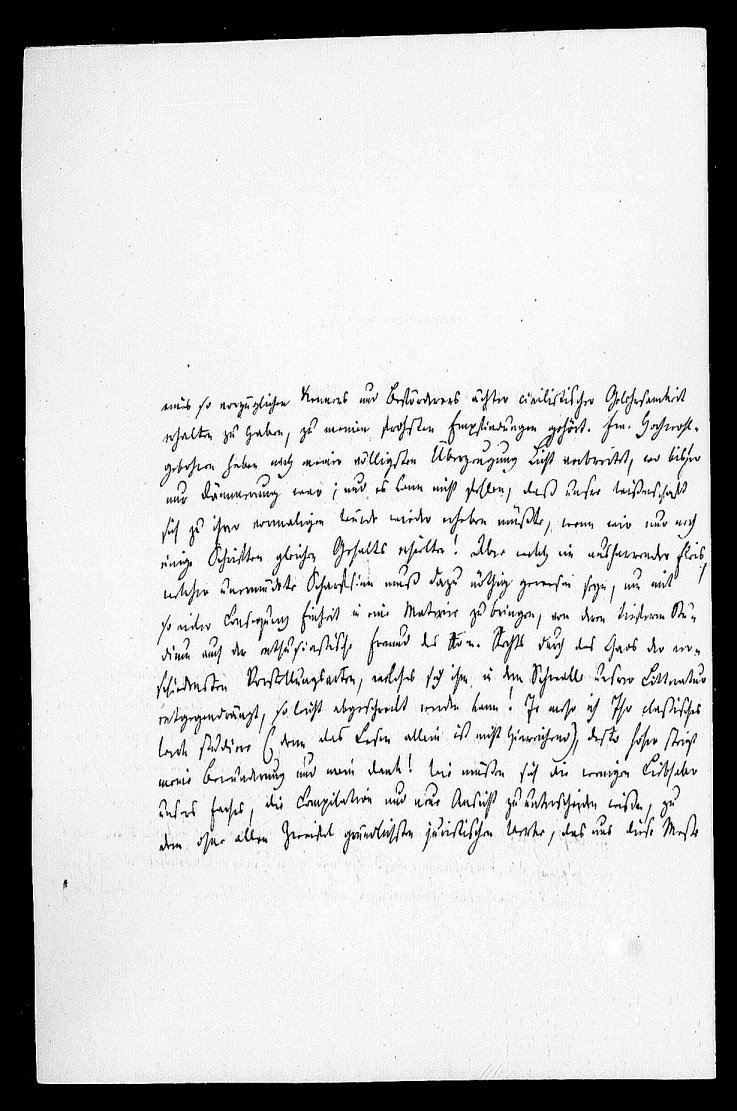 eines so vorzüglichen Kenners und Beförderers ächter civilistischer Gelehrsamkeit
erhalten zu haben, zu meinen frohsten Empfindungen gehört. Ew. Hochwohl-
gebohren haben nach meiner völligsten Überzeugung Licht verbreitet, wo bisher
nur Dämmerung war; und es kann nicht fehlen, daß unsre Wissenschaft
sich zu ihrer vormaligen Würde wieder erheben müßte, wenn wir nur noch
einige Schriften gleichen Gehalts erhielten! Aber welch ein ausharrender Fleis,
welcher unermüdete Scharfsinn muß dazu nöthig gewesen seyn, um mit
so vieler Consequenz Einheit in eine Materie zu bringen, von deren tieferem Stu-
dium auch der enthusiastische Freund des Röm. Rechts durch das Chaos der ver-
schiedensten Vorstellungsarten, welches sich ihm in dem Schwall unsrer Litteratur
entgegendrängt, so leicht abgeschreckt werden kann! Je mehr ich Ihr classisches
Werk studiere (denn das Lesen allein ist nicht hinreichend), desto höher steigt
meine Bewunderung und mein Dank! Wie müssen sich die wenigen Liebhaber
unsres Faches, die Compilation und neue Ansicht zu unterscheiden wissen, zu
dem ohne allen Zweifel gründlichsten juristischen Werke, das uns diese Messe